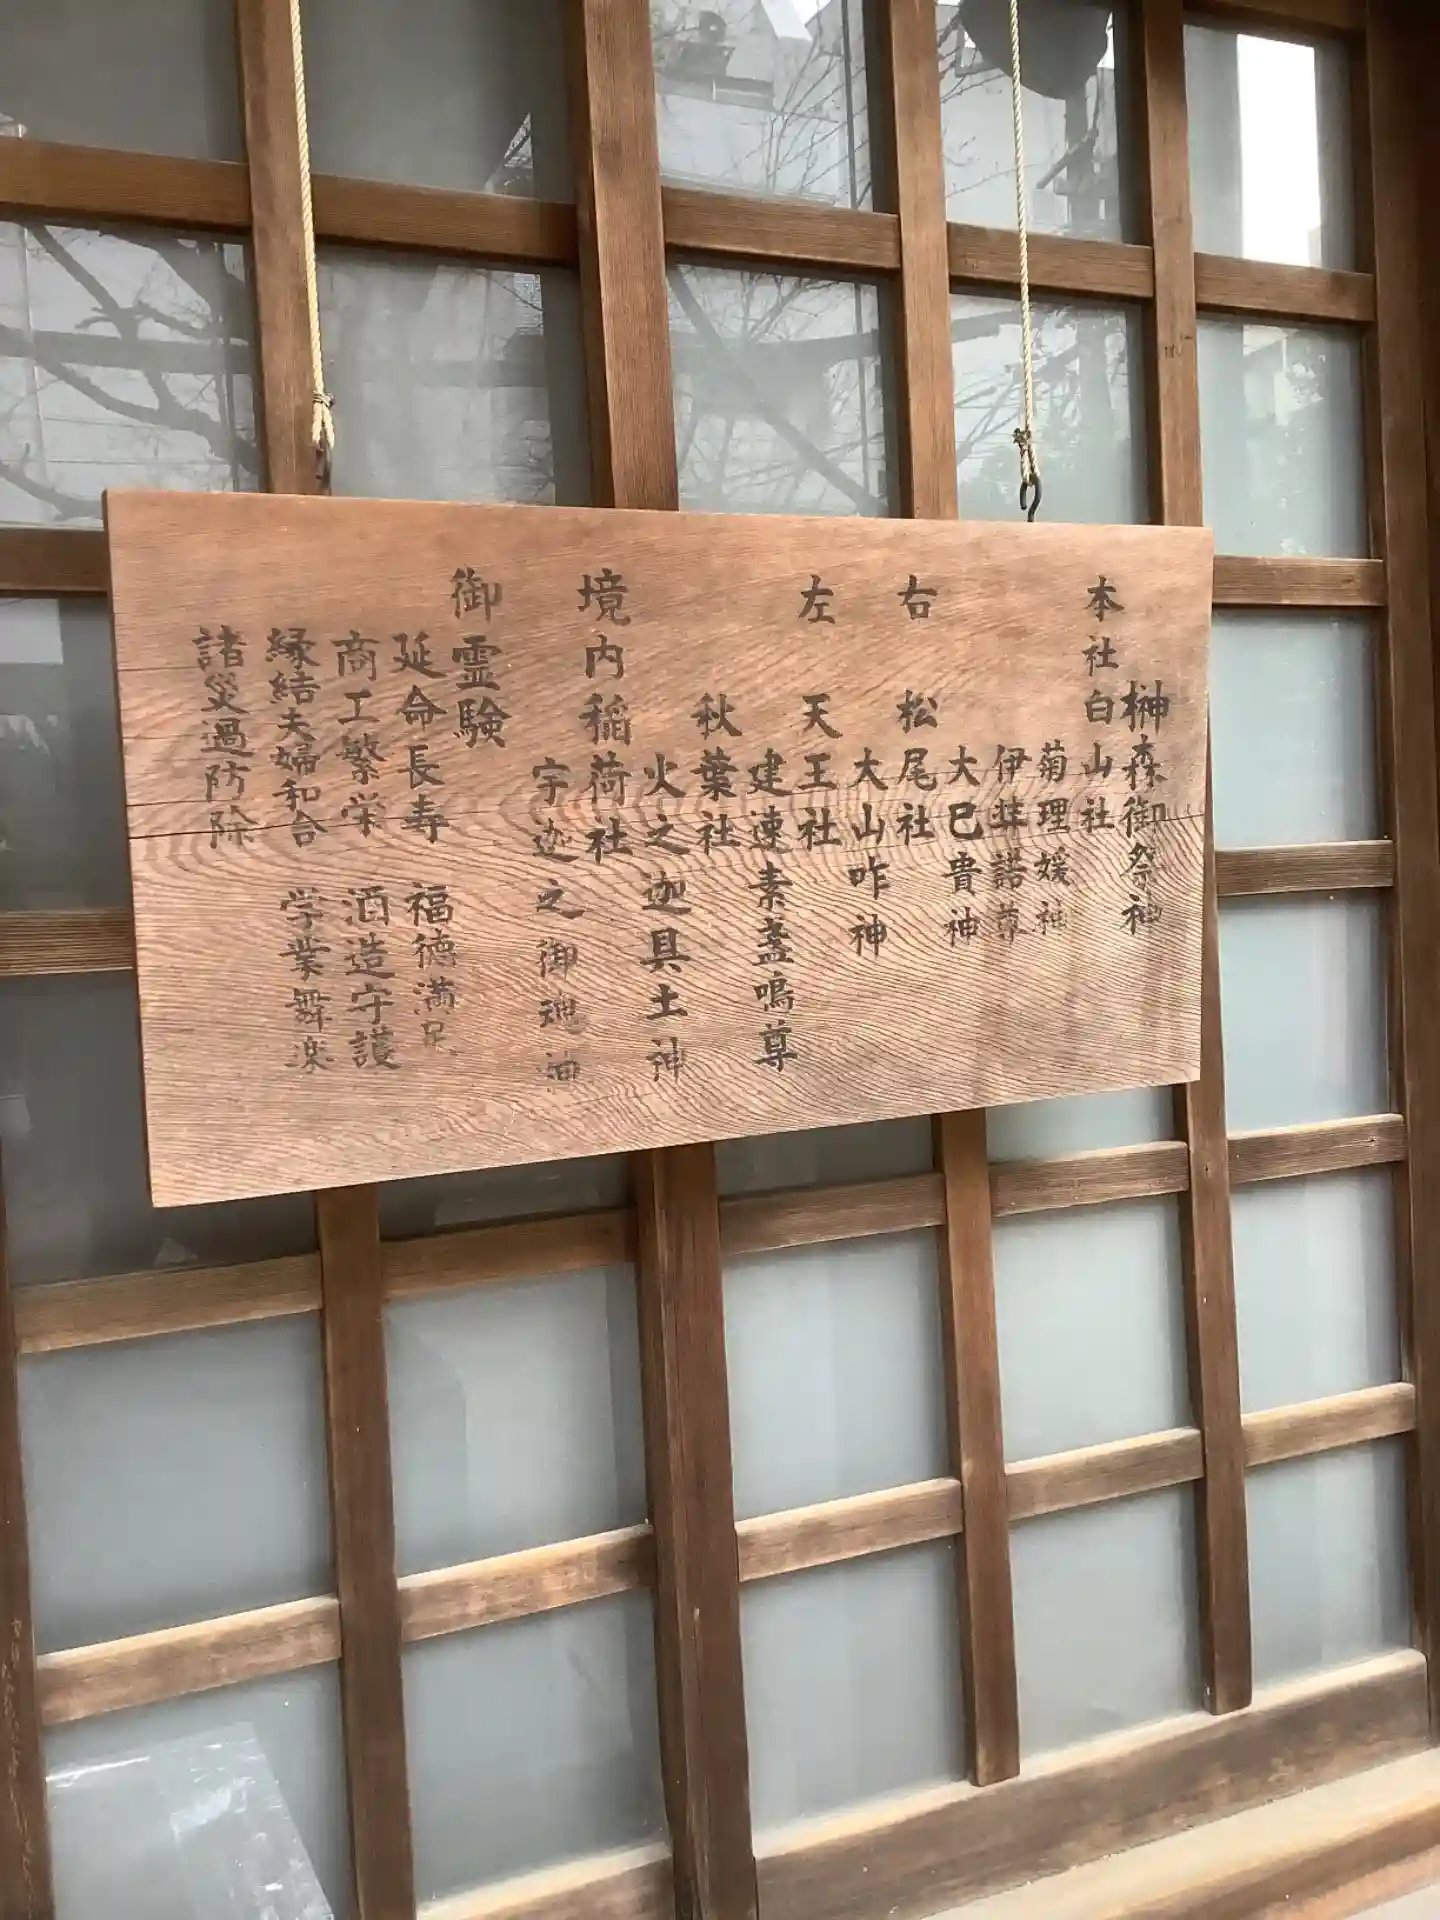 榊森御祭神
本社白山社
菊理媛神
伊弉諾尊
大巳貴神
右 松尾社
大山咋神
左 天王社
建速素盞嗚尊
秋葉社
火之迦具土神
境内稲荷社
宇迦之御魂神
御霊験
延命長寿 福徳満足
商工繁栄 酒造守護
縁結夫婦和合 学業舞楽
諸災過防除